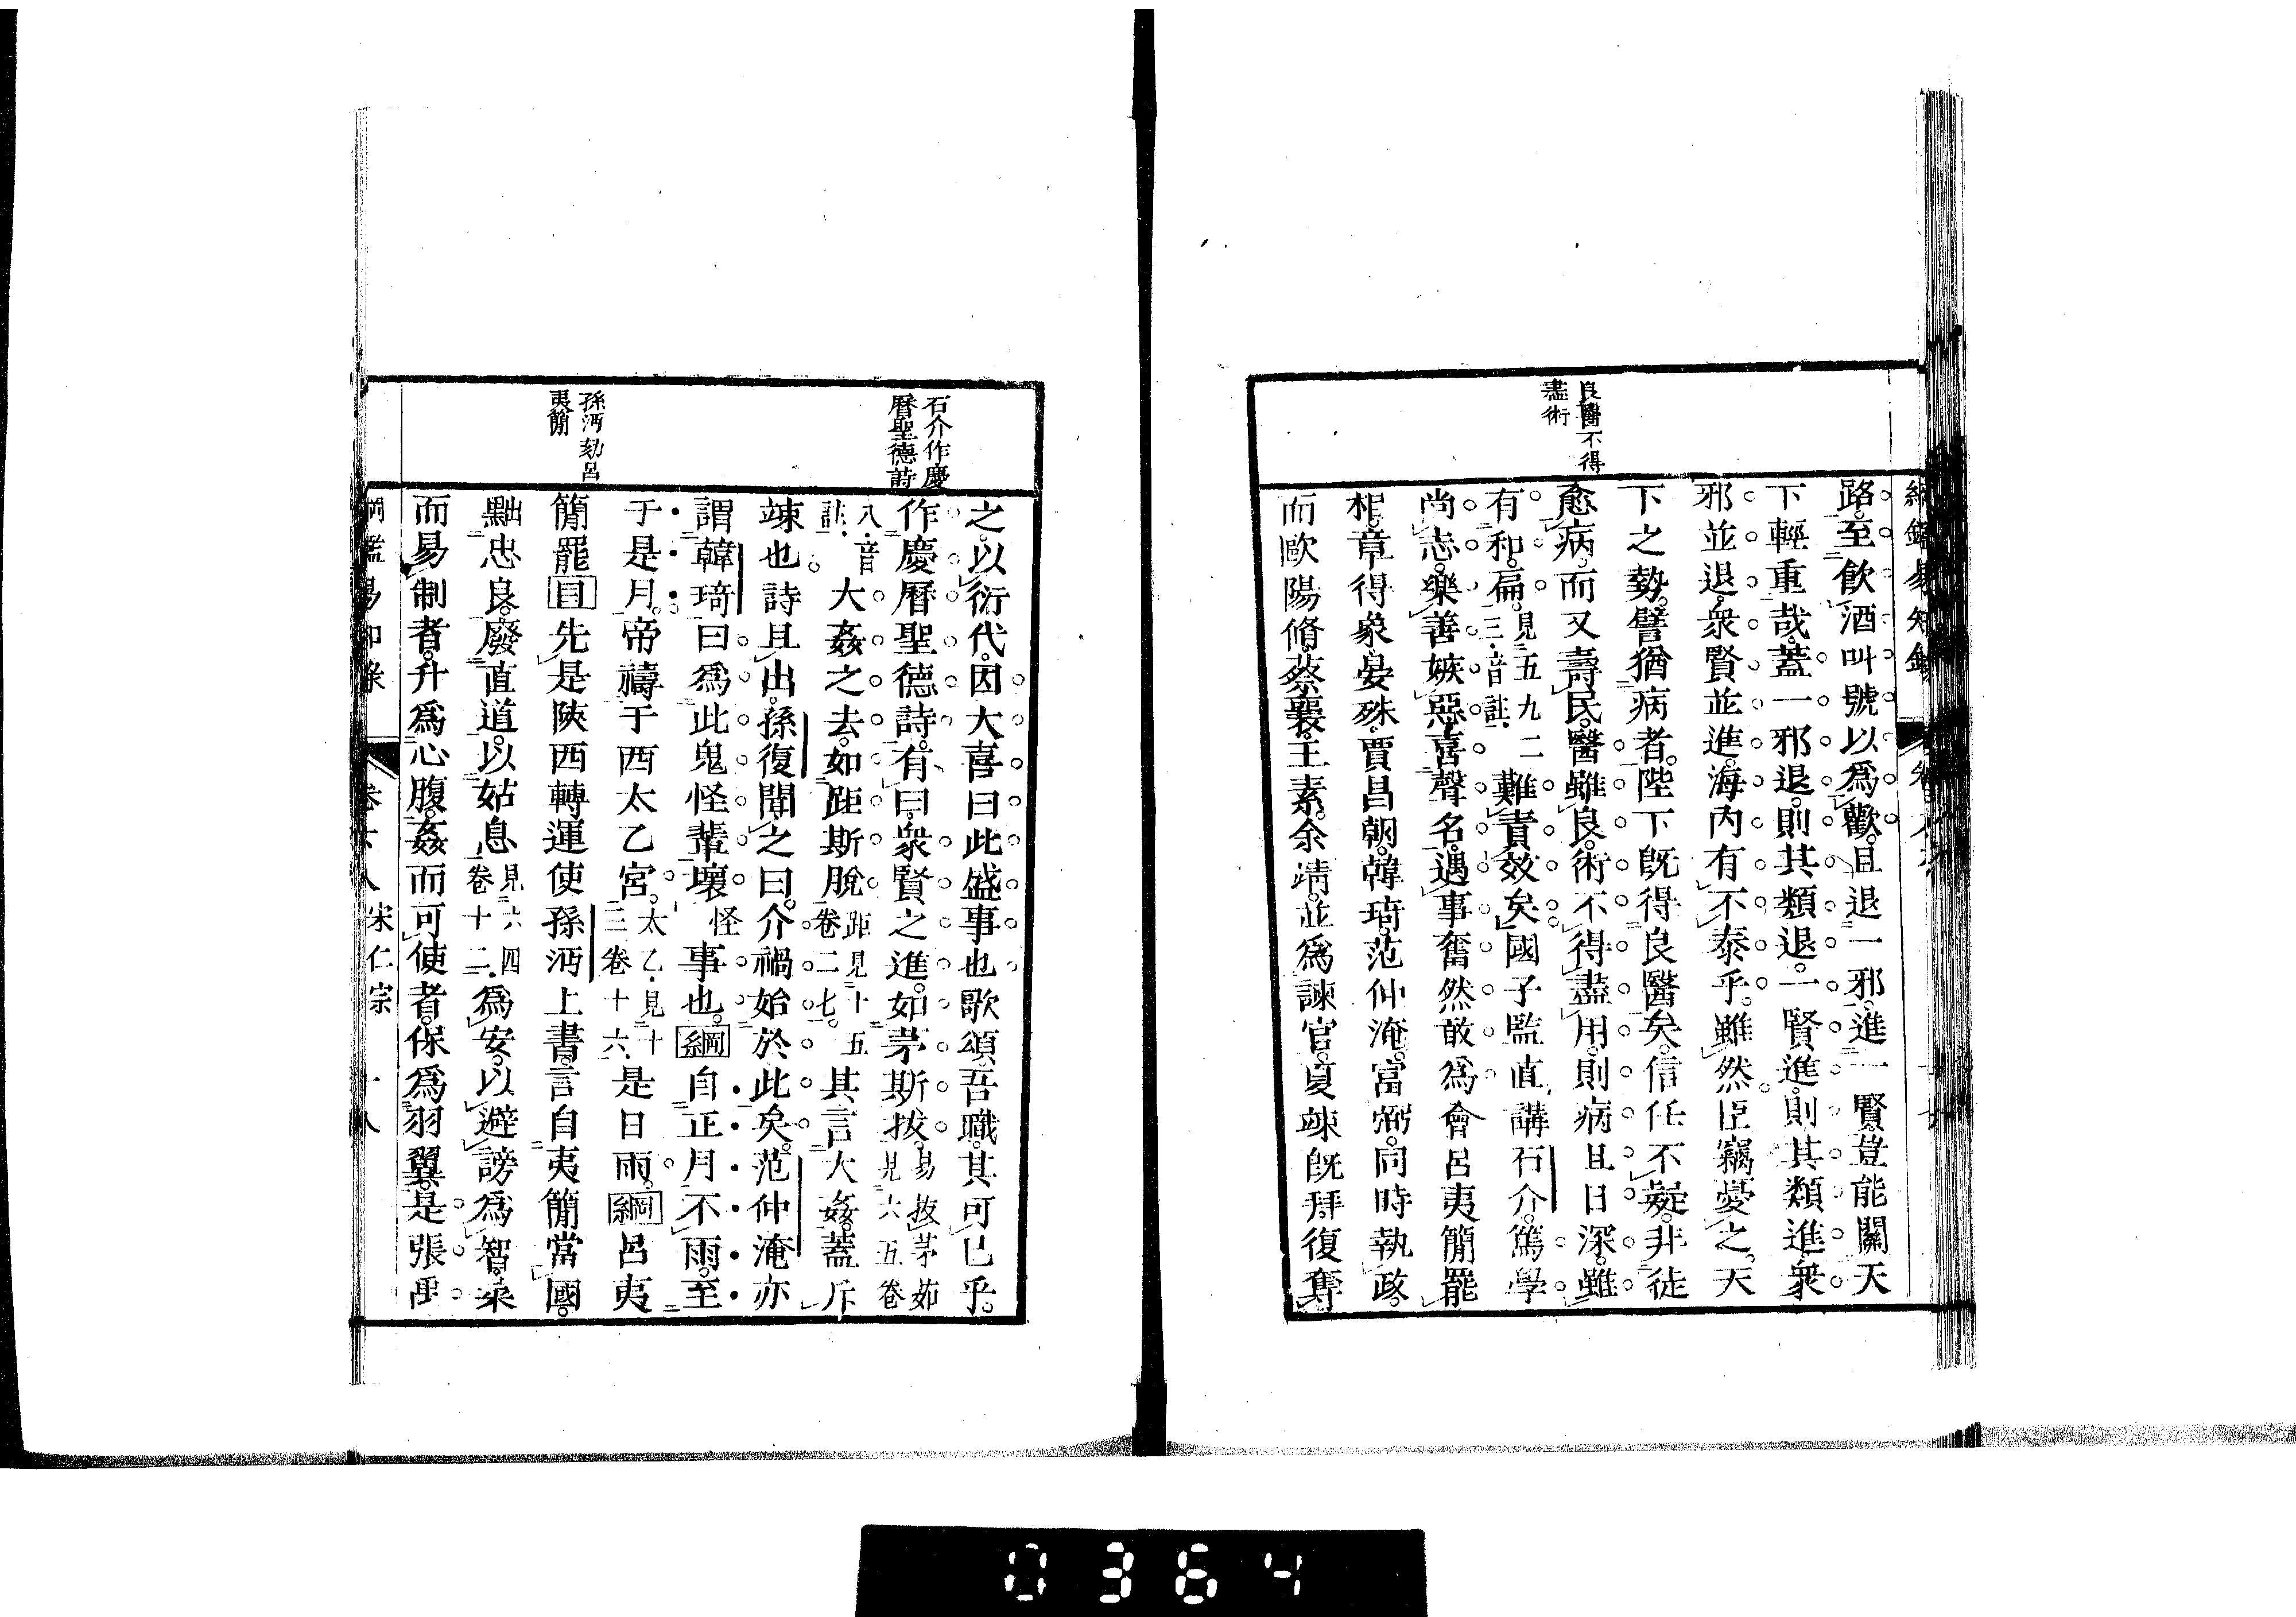 良醫不得
盡術
路。至飮酒叫號以爲歡。且退一邪。進一賢。豈能關天
下輕重哉。蓋一邪退。則其類退。一賢進。則其類進。衆
邪並退。衆賢並進。海內有不泰乎。雖然臣竊憂之。天
下之勢。譬猶病者。陛下既得良醫矣。信任不疑。非徒
愈病。而又壽民。醫雖良。術不得盡用。則病且日深。雖
有和。扁。見五九二
三。音註。
難責效矣。國子監直講石介。篤學
尚志。樂善嫉惡。喜聲名。遇事奮然敢爲。會呂夷簡罷
相。章得象。晏殊。賈昌朝。韓琦。范仲淹。富弼。同時執政。
而歐陽脩。蔡襄。王素。余靖。並爲諫官。夏竦既拜。復奪
石介作慶
曆聖德詩
孫沔劾呂
夷簡
之。以衍代。因大喜曰此盛事也歌頌吾職。其可已乎。
作慶曆聖德詩。有曰。衆賢之進。如茅斯拔。易拔茅茹
見六五卷
八。音
註。
大姦之去。如距斯脫
距見十五
卷二七。
其言大姦。蓋斥
竦也。詩且出。孫復聞之曰。介禍始於此矣。范仲淹亦
謂韓琦曰爲此鬼怪輩壞
怪
事也。綱自正月不雨。至
于是月。帝禱于西太乙宮。
太乙。見十
三卷十六
是日雨。綱呂夷
簡罷目先是陝西轉運使孫沔上書。言自夷簡當國。
黜忠良。廢直道。以姑息
見六四
卷十二。
爲安。以避謗爲智。柔
而易制者。升爲心腹。姦而可使者。保爲羽翼。是張禹
宋仁宗
0364